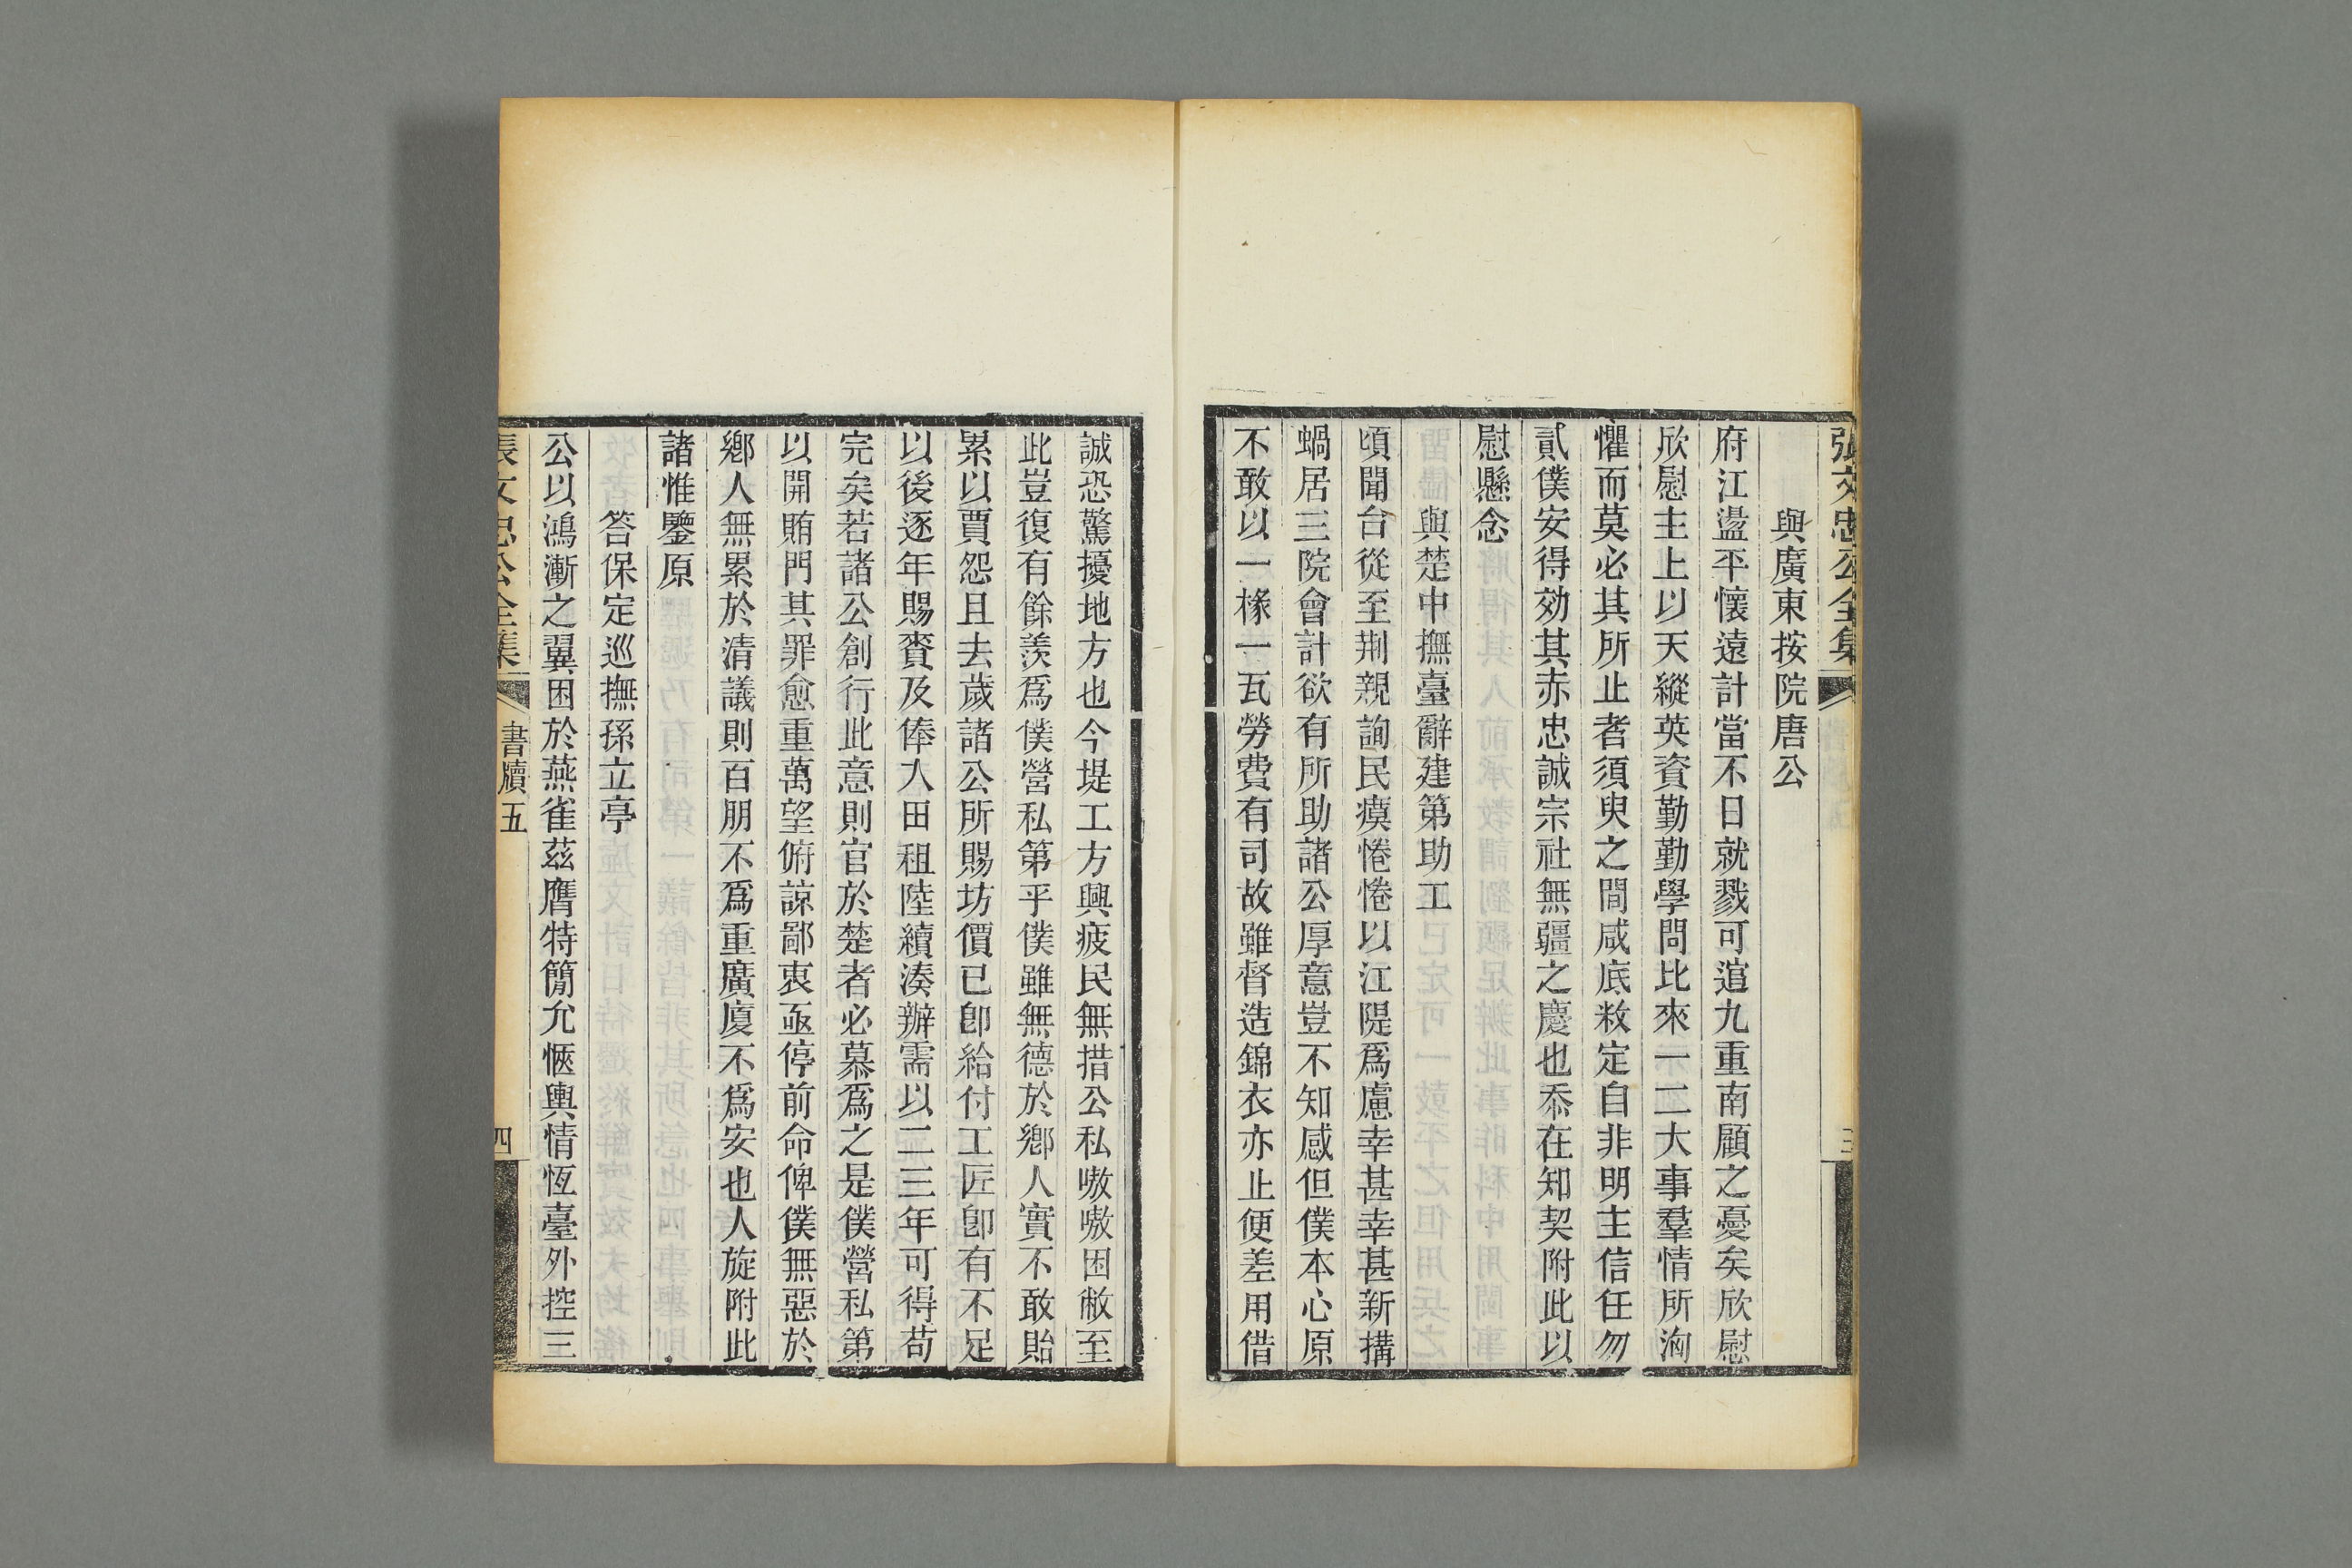 張文忠公全集
三
與廣東按院唐公
府江盪平懷遠計當不日就戮可逭九重南顧之憂矣欣慰
欣慰主上以天縱英資勤勤學問比來一二大事羣情所洶
懼而莫必其所止者須臾之間咸底敉定自非明主信任勿
貳僕安得効其赤忠誠宗社無疆之慶也忝在知契附此以
慰懸念
與楚中撫臺辭建第助工
頃聞台從至荆親詢民瘼惓惓以江隄爲慮幸甚幸甚新搆
蝸居三院會計欲有所助諸公厚意豈不知感但僕本心原
不敢以一椽一瓦勞費有司故雖督造錦衣亦止便差用借
誠恐驚擾地方也今堤工方興疲民無措公私嗷嗷困敝至
此豈復有餘羨爲僕營私第乎僕雖無德於鄉人實不敢貽
累以賈怨且去歲諸公所賜坊價已卽給付工匠卽有不足
以後逐年賜賚及俸入田租陸續湊辦需以二三年可得苟
完矣若諸公創行此意則官於楚者必慕爲之是僕營私第
以開賄門其罪愈重萬望俯諒鄙衷亟停前命俾僕無惡於
鄉人無累於清議則百朋不爲重廣廈不爲安也人旋附此
諸惟鑒原
答保定巡撫孫立亭
公以鴻漸之翼困於燕雀茲膺特簡允愜輿情恆臺外控三
張文忠公全集
書牘五
四